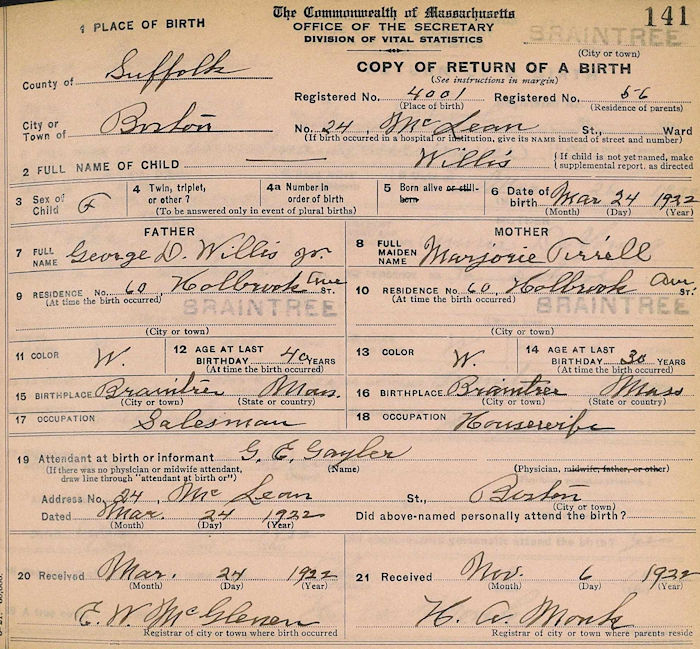 The Commonwealth of Massachusetts
141
1 PLACE OF BIRTH
OFFICE OF THE SECRETARY
DIVISION OF VITAL STATISTICS
BRAINTREE
(City or town)
County of Suffolk
COPY OF RETURN OF A BIRTH
(See instructions in margin)
Registered No. 4001 Registered No. 56
(Place of birth) (Residence of parents)
City or Town of Boston
No. 24, McLean St., Ward
(If birth occurred in a hospital or institution, give its NAME instead of street and number)
2 FULL NAME OF CHILD Willis
{If child is not yet named, make supplemental report, as directed
3 Sex of Child F
4 Twin, triplet, or other?
4a Number in order of birth
(To be answered only in event of plural births)
5 Born alive or still-born
6 Date of birth Mar 24 1922
(Month) (Day) (Year)
FATHER
7 FULL NAME George D. Willis Jr.
MOTHER
8 FULL MAIDEN NAME Marjorie Tirrell
9 RESIDENCE No. 60, Holbrook Ave ST.
(At time the birth occurred)
BRAINTREE
(City or town)
10 RESIDENCE No. 60, Holbrook Ave ST.
(At time the birth occurred)
BRAINTREE
(City or town)
11 COLOR W.
12 AGE AT LAST BIRTHDAY 40 YEARS
(At time the birth occurred)
13 COLOR W.
14 AGE AT LAST BIRTHDAY 30 YEARS
(At time the birth occurred)
15 BIRTHPLACE Braintree Mass.
(City or town) (State or country)
16 BIRTHPLACE Braintree Mass
(City or town) (State or country)
17 OCCUPATION Salesman
18 OCCUPATION Housewife
19 Attendant at birth or informant G. E. Gayler
(If there was no physician or midwife attendant, draw line through "attendant at birth or")
(Name) (Physician, midwife, father, or other)
Address No. 24, McLean St., Boston
(City or town)
Dated Mar. 24 1922
(Month) (Day) (Year)
Did above-named personally attend the birth?
20 Received Mar. 24 1922
(Month) (Day) (Year)
E. W. McGlenen
Registrar of city or town where birth occurred
21 Received Nov. 6 1922
(Month) (Day) (Year)
H. A. Monk
Registrar of city or town where parents reside